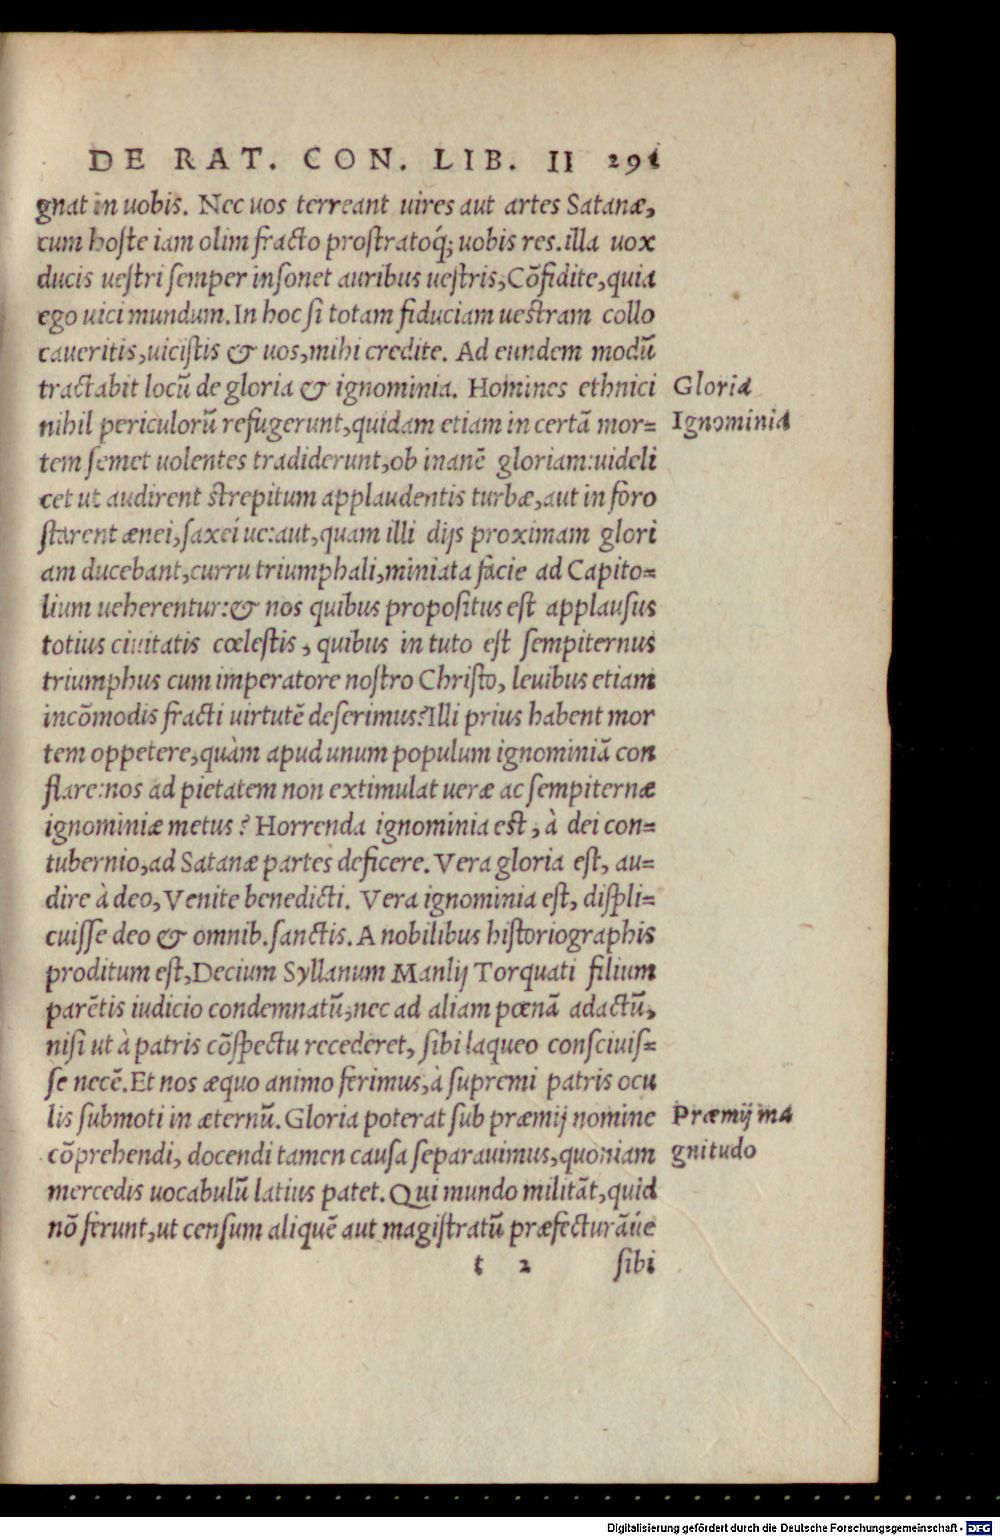 DE RAT. CON. LIB. II 291
gnat in uobis. Nec uos terreant uires aut artes Satanæ,
cum hoſte iam olim fracto proſtratoq́; uobis res. illa uox
ducis ueſtri ſemper inſonet auribus ueſtris, Cōfidite, quia
ego uici mundum. In hoc ſi totam fiduciam ueſtram collo
caueritis, uiciſtis & uos, mihi credite. Ad eundem modū
tractabit locū de gloria & ignominia. Homines ethnici
Gloria
nihil periculorū refugerunt, quidam etiam in certā mor=
Ignominia
tem ſemet uolentes tradiderunt, ob inanē gloriam: uideli
cet ut audirent ſtrepitum applaudentis turbæ, aut in foro
ſtarent ænei, ſaxei ue: aut, quam illi dijs proximam glori
am ducebant, curru triumphali, miniata facie ad Capito=
lium ueherentur: & nos quibus propoſitus eſt applauſus
totius ciuitatis cœleſtis, quibus in tuto eſt ſempiternus
triumphus cum imperatore noſtro Chriſto, leuibus etiam
incōmodis fracti uirtutē deſerimus? Illi prius habent mor
tem oppetere, quàm apud unum populum ignominiā con
flare: nos ad pietatem non extimulat ueræ ac ſempiternæ
ignominiæ metus? Horrenda ignominia eſt, à dei con=
tubernio, ad Satanæ partes deficere. Vera gloria eſt, au=
dire à deo, Venite benedicti. Vera ignominia eſt, diſpli=
cuiſſe deo & omnib. ſanctis. A nobilibus hiſtoriographis
proditum eſt, Decium Syllanum Manlij Torquati filium
parētis iudicio condemnatū, nec ad aliam pœnā adactū,
niſi ut à patris cōſpectu recederet, ſibi laqueo conſciuiſ=
ſe necē. Et nos æquo animo ferimus, à ſupremi patris ocu
lis ſubmoti in æternū. Gloria poterat ſub præmij nomine
Præmij ma
cōprehendi, docendi tamen cauſa ſeparauimus, quoniam
gnitudo
mercedis uocabulū latius patet. Qui mundo militāt, quid
nō ferunt, ut cenſum aliquē aut magiſtratū præfecturāúe
t 2 ſibi
Digitalisierung gefördert durch die Deutsche Forschungsgemeinschaft - DFG